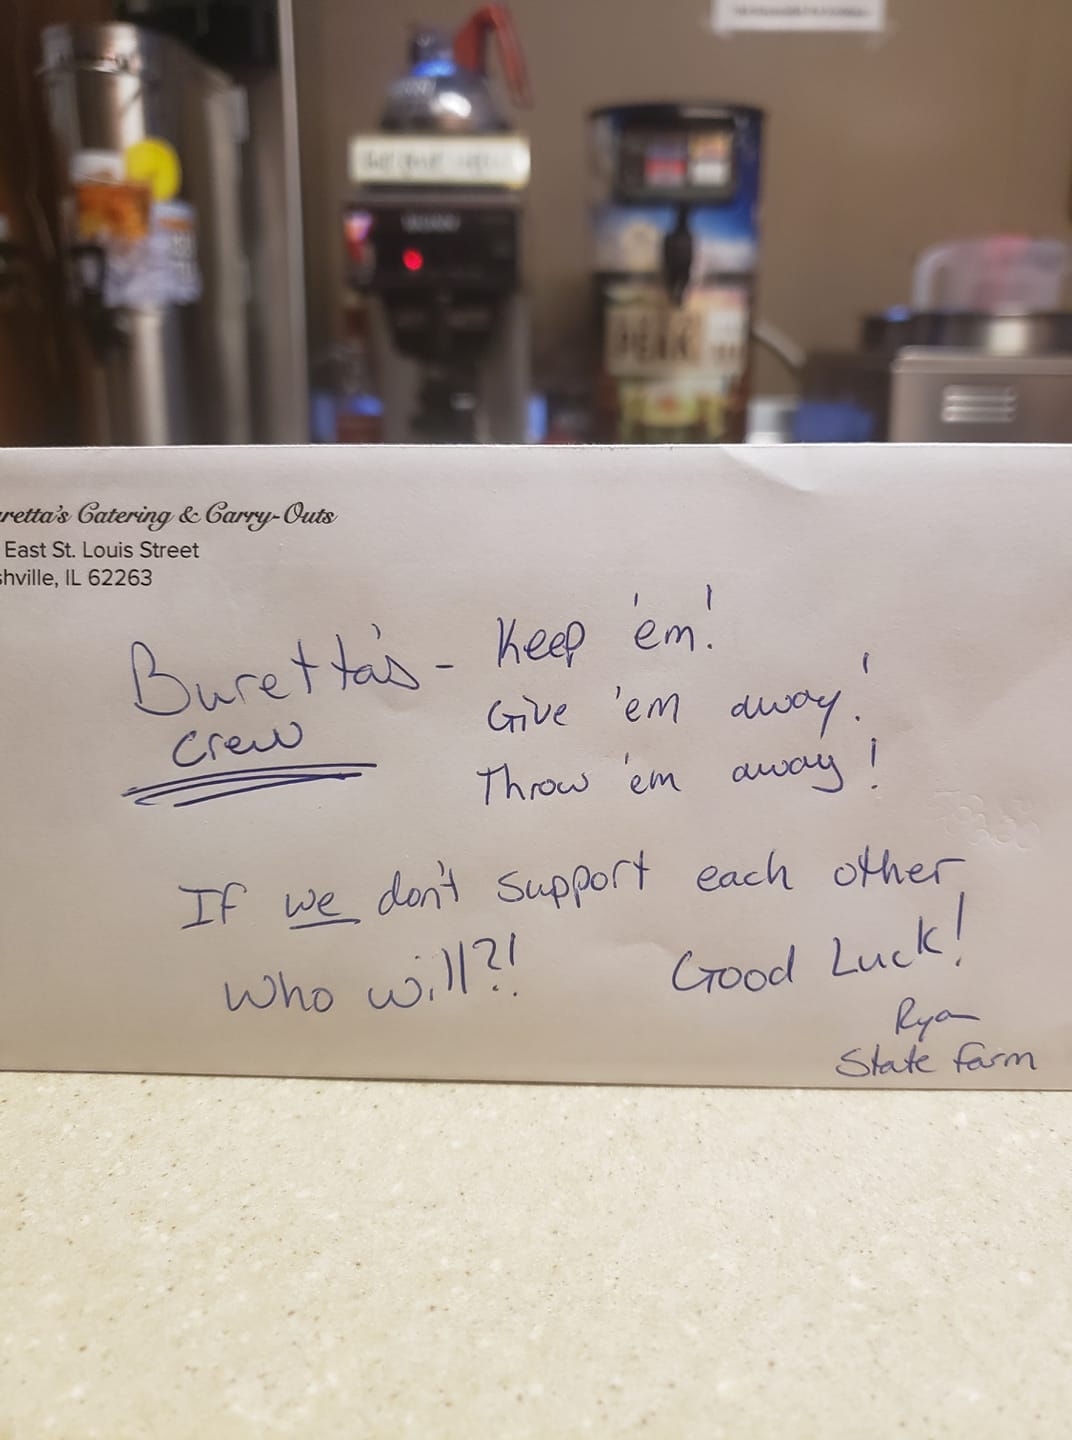 PEAK
retta's Catering & Carry-Outs
East St. Louis Street
shville, IL 62263
Buretta's - Keep 'em!
Crew
Give 'em away!
Throw 'em away!
If we don't support each other
Who will?!
Good Luck!
Ryan
State Farm